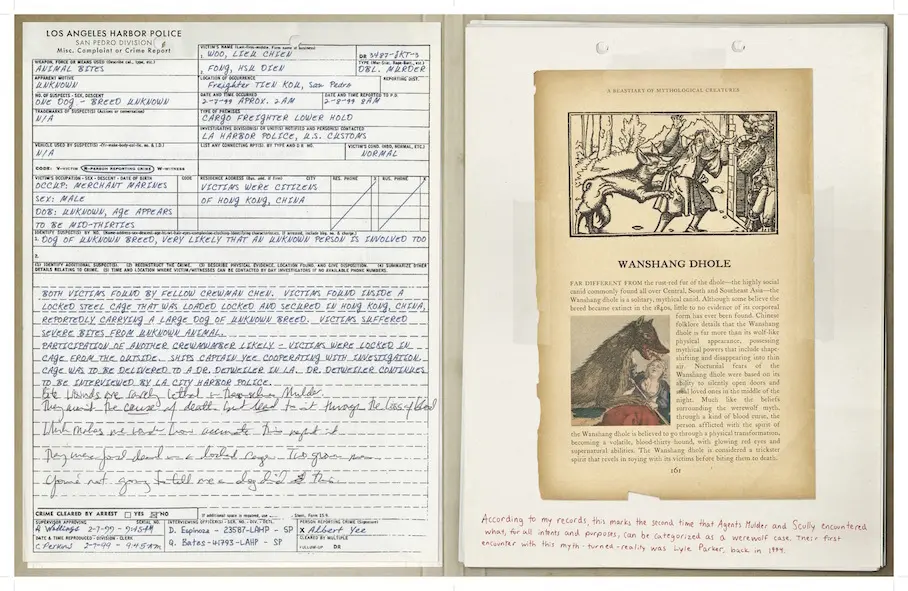 LOS ANGELES HARBOR POLICE
SAN PEDRO DIVISION
Misc. Complaint or Crime Report
VICTIM'S NAME
WOO, LIEU CHIEN
DR 3487-JKT-3
WEAPON, FORCE OR MEANS USED
ANIMAL BITES
FONG, HSU DIEN
DBL. MURDER
APPARENT MOTIVE
UNKNOWN
LOCATION OF OCCURRENCE
Freighter TIEN KOU, San Pedro
REPORTING DIST.
NO. OF SUSPECTS - SEX, DESCENT
ONE DOG - BREED UNKNOWN
DATE AND TIME OCCURRED
2-7-99 APROX. 2AM
DATE AND TIME REPORTED TO P.D.
2-8-99 8AM
TRADEMARKS OF SUSPECT(S)
N/A
TYPE OF PREMISES
CARGO FREIGHTER LOWER HOLD
INVESTIGATIVE DIVISION(S) OR UNIT(S) NOTIFIED AND PERSON(S) CONTACTED
LA HARBOR POLICE, U.S. CUSTOMS
VEHICLE USED BY SUSPECT(S)
N/A
LIST ANY CONNECTING RPT(S). BY TYPE AND D R NO.
VICTIM'S COND.
NORMAL
CODE: V-VICTIM R-PERSON REPORTING CRIME W-WITNESS
VICTIM'S OCCUPATION - SEX - DESCENT - DATE OF BIRTH
CODE
RESIDENCE ADDRESS
CITY
RES. PHONE
X
BUS. PHONE
X
OCCUP: MERCHANT MARINES
VICTIMS WERE CITIZENS
SEX: MALE
OF HONG KONG, CHINA
DOB: UNKNOWN, AGE APPEARS
TO BE MID-THIRTIES
1. DOG OF UNKNOWN BREED, VERY LIKELY THAT AN UNKNOWN PERSON IS INVOLVED TOO
2.
(1) IDENTIFY ADDITIONAL SUSPECT(S). (2) RECONSTRUCT THE CRIME. (3) DESCRIBE PHYSICAL EVIDENCE, LOCATION FOUND, AND GIVE DISPOSITION. (4) SUMMARIZE OTHER
DETAILS RELATING TO CRIME. (5) TIME AND LOCATION WHERE VICTIM/WITNESSES CAN BE CONTACTED BY DAY INVESTIGATORS IF NO AVAILABLE PHONE NUMBERS.
BOTH VICTIMS FOUND BY FELLOW CREWMAN CHEN. VICTIMS FOUND INSIDE A
LOCKED STEEL CAGE THAT WAS LOADED LOCKED AND SECURED IN HONG KONG, CHINA,
REPORTEDLY CARRYING A LARGE DOG OF UNKNOWN BREED. VICTIMS SUFFERED
SEVERE BITES FROM UNKNOWN ANIMAL.
PARTICIPATION OF ANOTHER CREWMEMBER LIKELY - VICTIMS WERE LOCKED IN
CAGE FROM THE OUTSIDE. SHIPS CAPTAIN YEE COOPERATING WITH INVESTIGATION.
CAGE WAS TO BE DELIVERED TO A DR. DETWEILER IN LA. DR. DETWEILER CONTINUES
TO BE INTERVIEWED BY LA CITY HARBOR POLICE.
Bite Wounds are rarely lethal in themselves Mulder.
the cause of death, but lead to it through the loss of blood
Which makes me wonder how accurate this report is
They were found dead in a locked cage. Two grown men.
You're not going to tell me a dog did this.
CRIME CLEARED BY ARREST YES NO
SUPERVISOR APPROVING
SERIAL NO.
INTERVIEWING OFFICER(S) - SER. NO. - DIV. - DETL.
PERSON REPORTING CRIME
2-7-99 - 9:45AM
D. Espinoza - 23587-LAHP - SP
X Albert Yee
DATE & TIME REPRODUCED - DIVISION - CLERK
CLEARED BY MULTIPLE
C Perkins 2-7-99 - 9:45AM
Q. Bates - 41793-LAHP - SP
FOLLOW-UP DR
A BEASTIARY OF MYTHOLOGICAL CREATURES
WANSHANG DHOLE
FAR DIFFERENT FROM the rust-red fur of the dhole—the highly social
canid commonly found all over Central, South and Southeast Asia—the
Wanshang dhole is a solitary, mythical canid. Although some believe the
breed became extinct in the 1840s, little to no evidence of its corporeal
form has ever been found. Chinese
folklore details that the Wanshang
dhole is far more than its wolf-like
physical appearance, possessing
mythical powers that include shape-
shifting and disappearing into thin
air. Nocturnal fears of the
Wanshang dhole were based on its
ability to silently open doors and
loved ones in the middle of the
night. Much like the beliefs
surrounding the werewolf myth,
through a kind of blood curse, the
person afflicted with the spirit of
the Wanshang dhole is believed to go through a physical transformation,
becoming a volatile, blood-thirsty hound, with glowing red eyes and
supernatural abilities. The Wanshang dhole is considered a trickster
spirit that revels in toying with its victims before biting them to death.
161
According to my records, this marks the second time that Agents Mulder and Scully encountered
what, for all intents and purposes, can be categorized as a werewolf case. Their first
encounter with this myth-turned-reality was Lyle Parker, back in 1994.